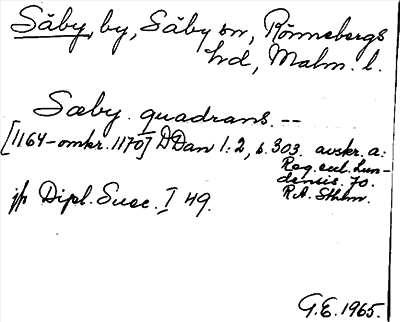 Säby, by, Säby sn, Rönnebergs
hd, Malm. l.
Sæby quadrans. --
[1164-omkr. 1170] DDan 1:2, s. 303. avskr. a:
Reg. eccl. Lun-
densis. fo.
R.A. Sthlm.
jfr Dipl. Suec. I 49.
G.E. 1965.